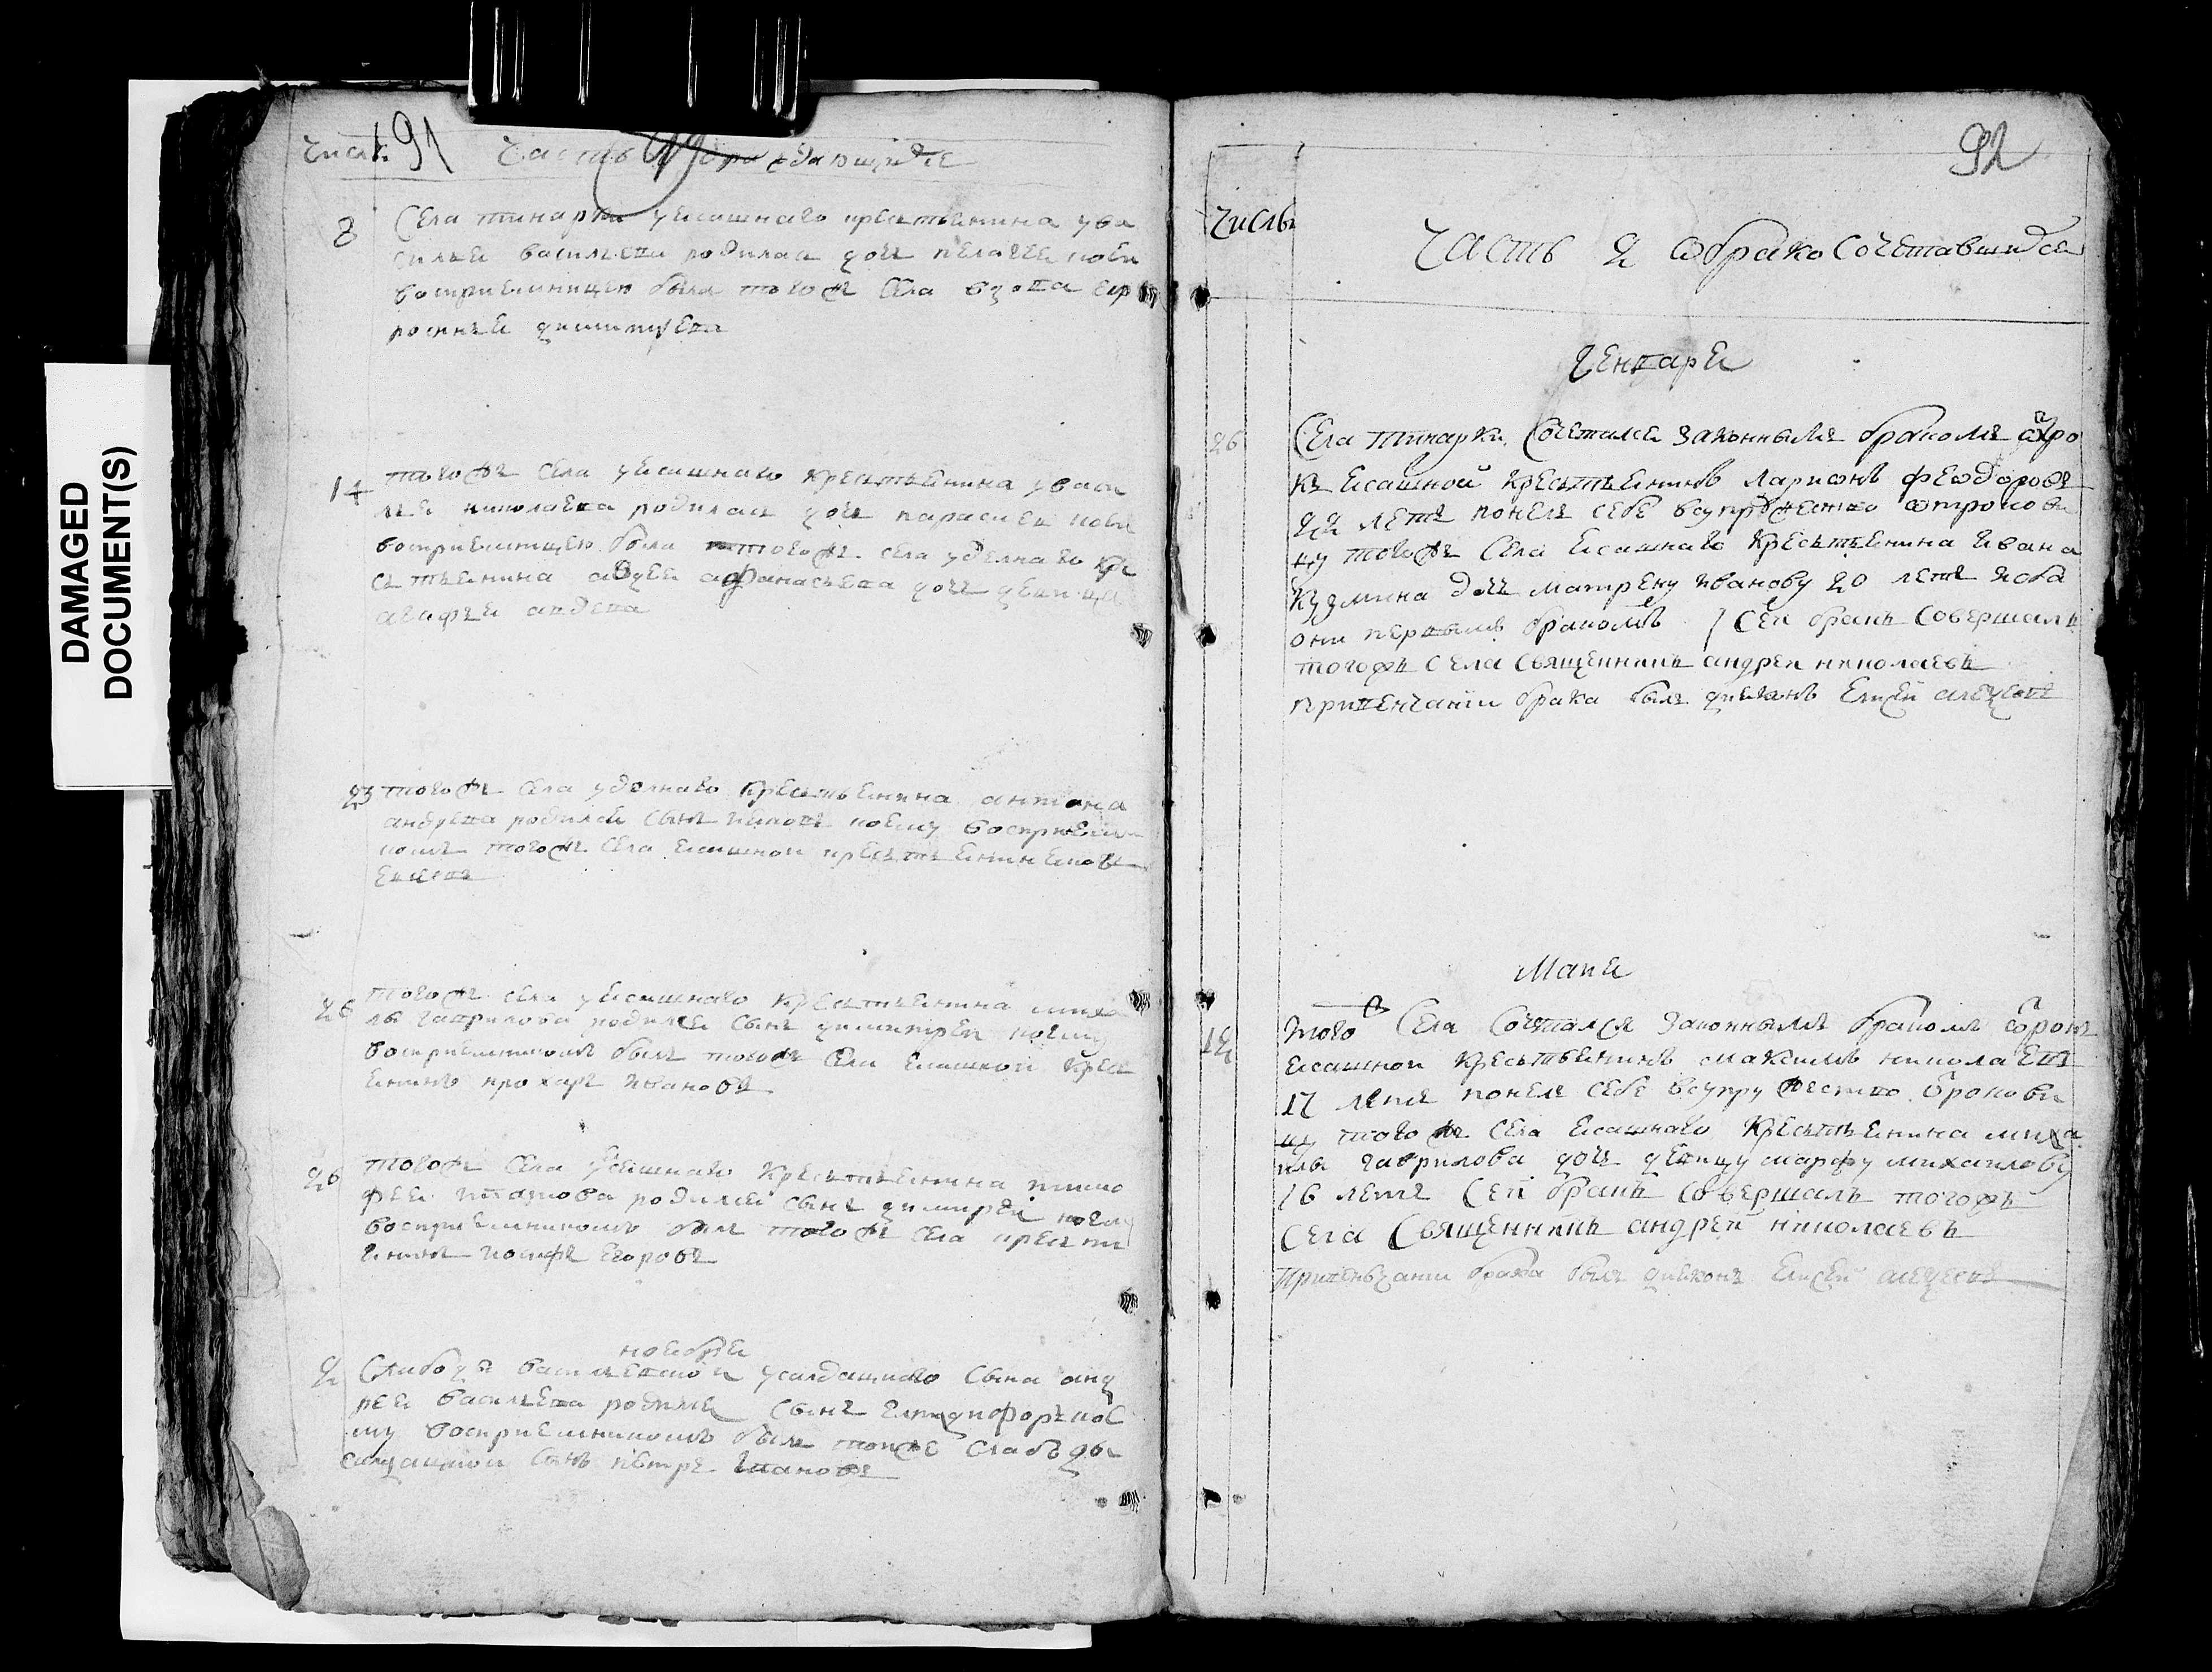 DAMAGED
DOCUMENT(S)
числа 91 Часть о раждающихся
8 Села тинарки уясашнаго крестьянина ува
силья васильева родилас дочь пелагея коеи
восприемницею была тогожъ села вдова еф
росинья
14 тогожъ села уясашнаго крестьянина уваси
лья николаева родилас дочь парасковья коеи
восприемницею была тогожъ села уделнаго кре
стьянина авдея афанасьева дочь девица
агафья авдева
23 тогожъ села уделнаго крестьянина антона
андреева родился сынъ иаковъ коему восприем
комъ тогожъ села ясашной крестьянинъ
26 тогожъ села уясашнаго крестьянина михаи
лы гаврилова родился сынъ димитрей коему
восприемникомъ былъ тогожъ села ясашной крес
янинъ прохаръ ивановъ
26 тогожъ села уясашнаго крестьянина тимо
фея родился сынъ димитрей коему
восприемникомъ былъ тогожъ села крестья
янинъ иосифъ егоровъ
ноября
2 Слабоды васильевской усалдацкаго сына анд
рея васильева родился сынъ коe
му восприемникомъ былъ тойже слабоды
салдацкой сынъ петръ ивановъ
92
числы
Часть 2 о бракосочетавшихся
Генваря
26 Села тинарки Сочетался законнымъ бракомъ отро
къ ясашной крестьянинъ ларионъ феодоровъ
22 летъ понялъ себе всупружество отрокови
цу тогожъ Села ясашнаго крестьянина ивана
кузмина дочь матрену иванову 20 летъ иоба
они первымъ бракомъ Сей бракъ совершалъ
тогожъ Села священникъ андрей николаевъ
привенчании брака былъ диаконъ Елисей алексеевъ
Маия
14 того ж Села Сочетался законнымъ бракомъ отрокъ
ясашной крестьянинъ максимъ николаевъ
17 летъ понялъ себе всупружество отрокови
цу тогожъ села ясашнаго крестьянина миха
илы гаврилова дочь девицу марфу михаилову
16 летъ Сей бракъ совершалъ тогожъ
Села Священникъ андрей николаевъ
привенчании брака былъ диаконъ Елисей алексеевъ